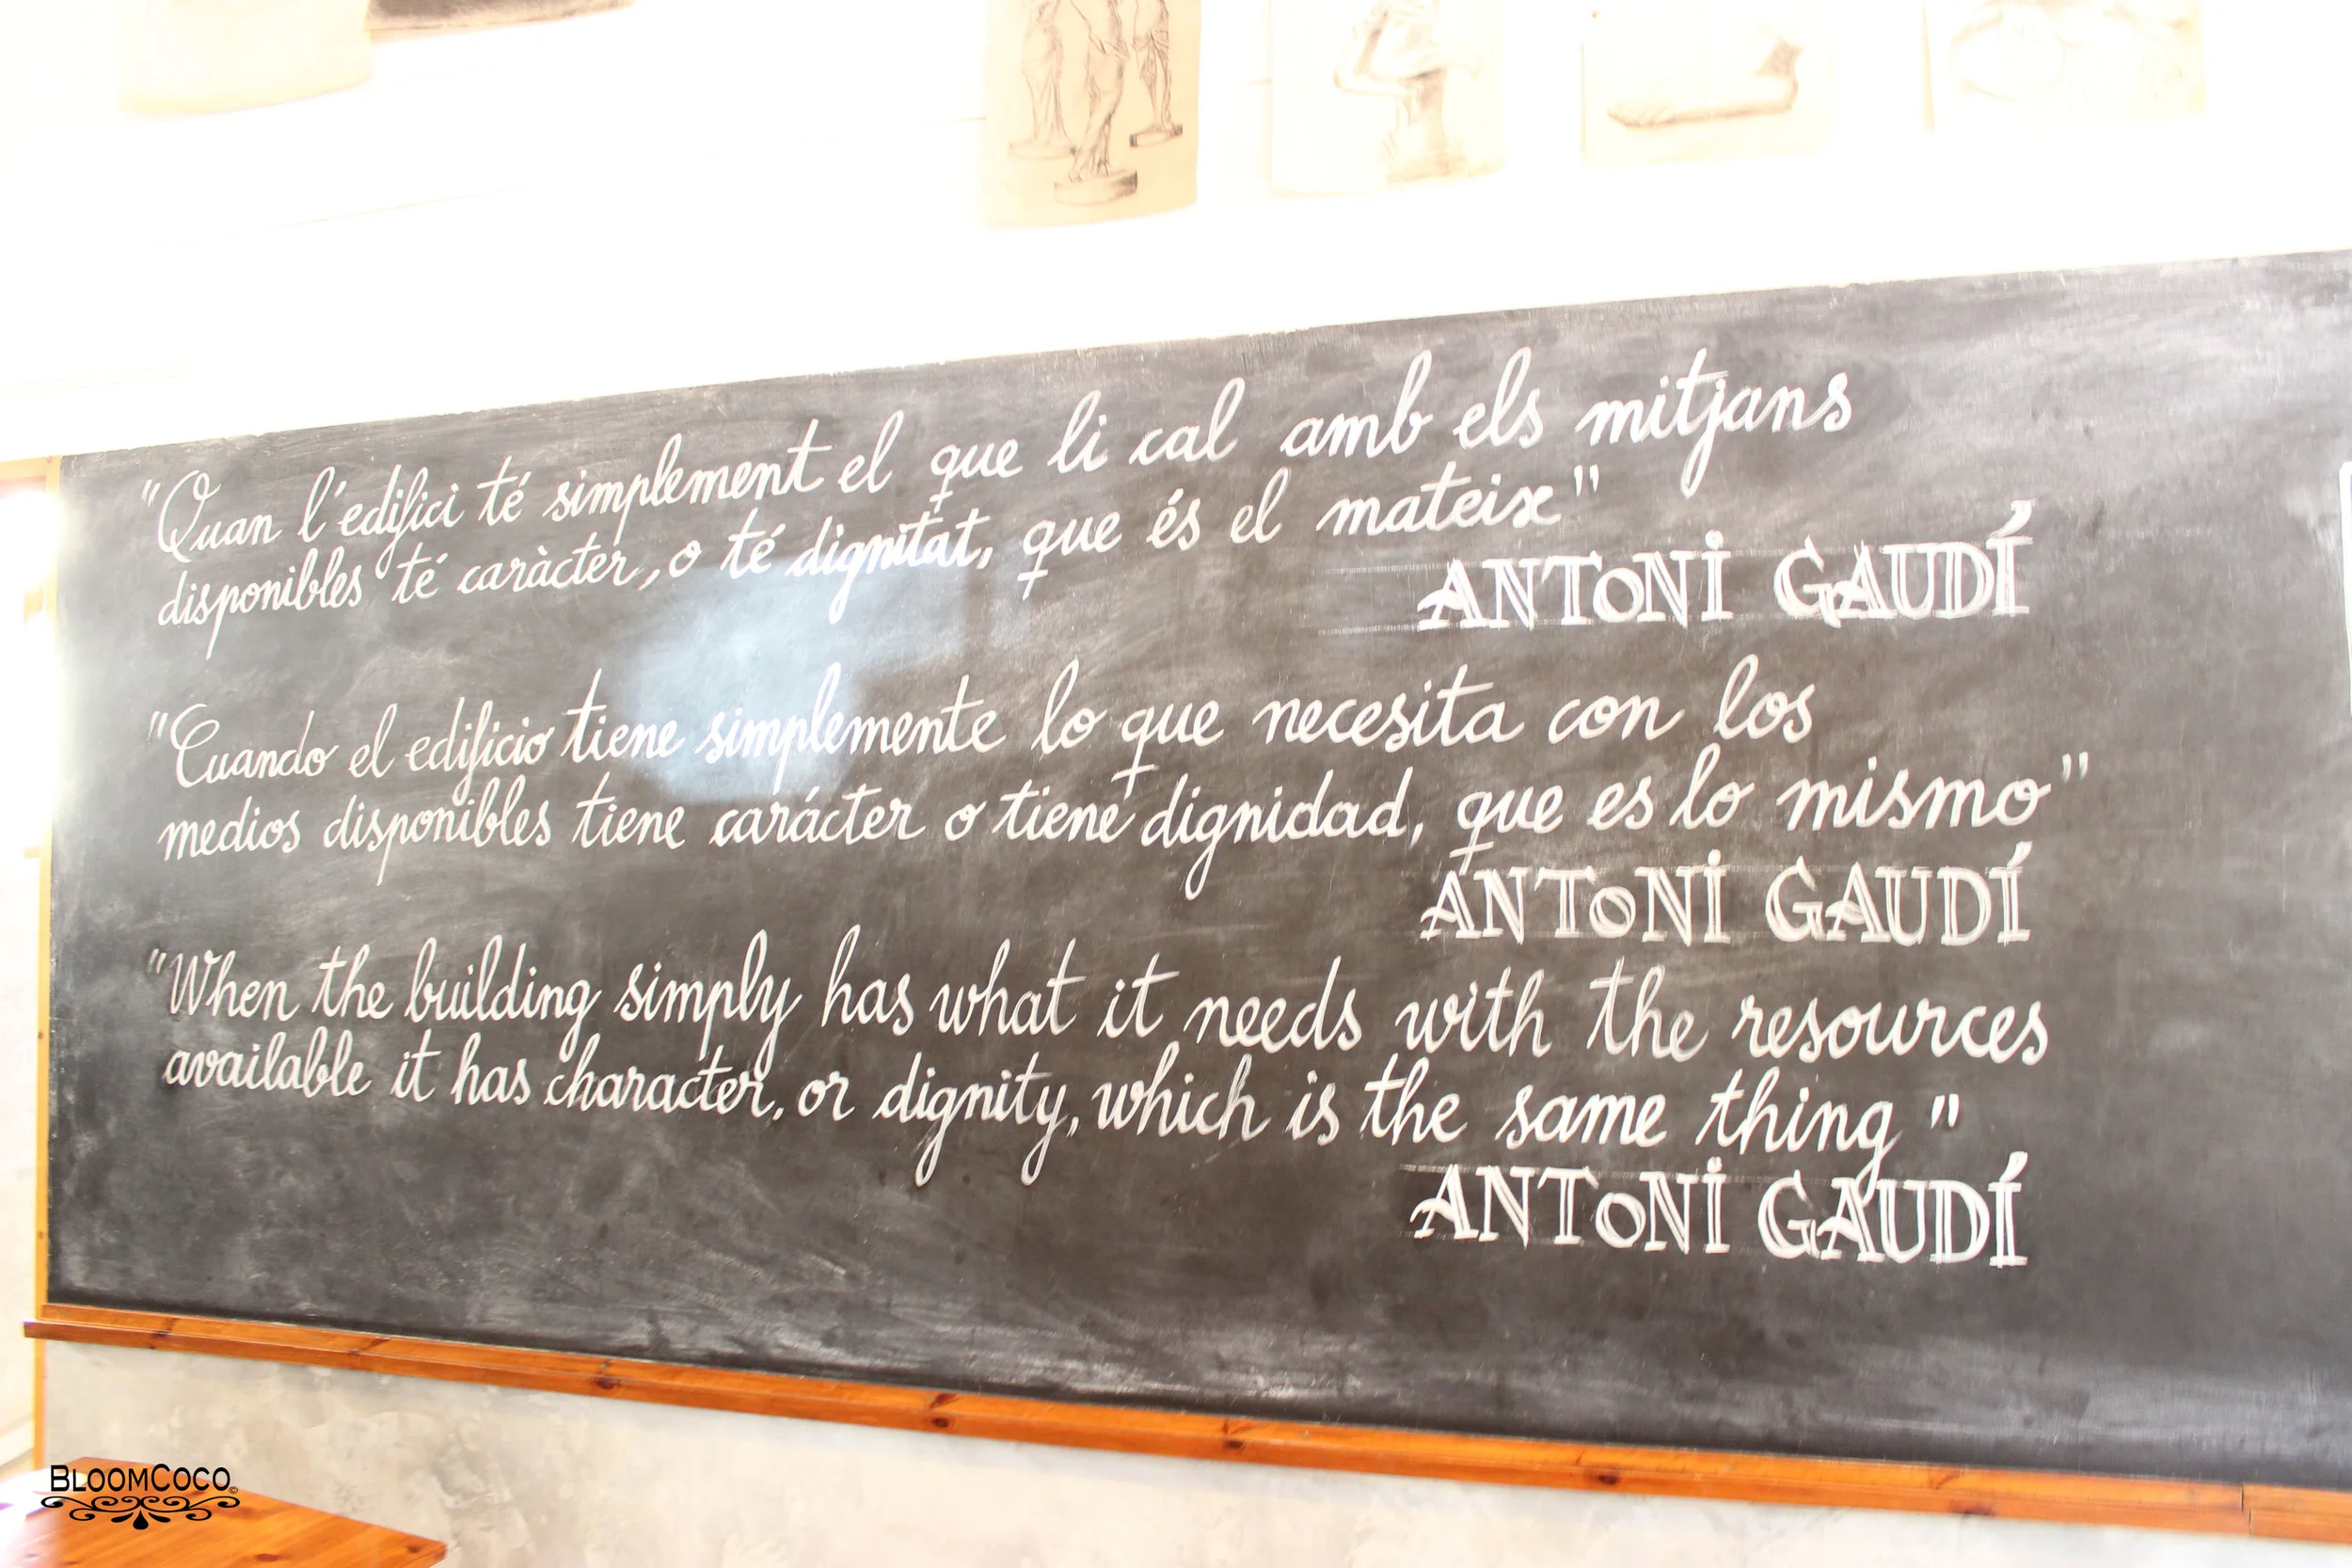 "Quan l'edifici té simplement el que li cal amb els mitjans
disponibles té caràcter, o té dignitat, que és el mateix"
ANTONI GAUDÍ
"Cuando el edificio tiene simplemente lo que necesita con los
medios disponibles tiene carácter o tiene dignidad, que es lo mismo"
ANTONI GAUDÍ
"When the building simply has what it needs with the resources
available it has character, or dignity, which is the same thing"
ANTONI GAUDÍ
BLOOMCOCO©